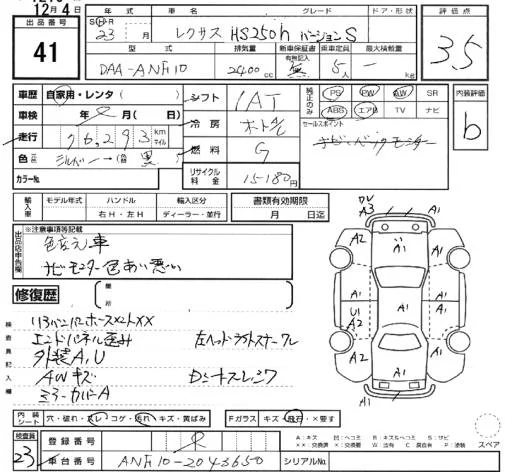 12月4日
出品番号
41
年式 車名 グレード ドア・形状 評価点
S H R
23 月 レクサス HS250h バージョンS 3.5
型式 排気量 新車保証書 乗車定員 最大積載量
有無記入
DAA-ANF10 2400 cc 無 5人 - kg
車歴 自家用・レンタ ( ) シフト IAT 純正のみ PS PW AW SR 内装評価
ABS エアB TV ナビ b
車検 年 月( 日) 冷房 オートA/C
セールスポイント
走行 76,293 km マイル ナビ・バックモニター
色 シルバー→ 黒 燃料 G
カラーNo. リサイクル料金 15180円
輸入車 モデル年式 ハンドル 輸入区分 書類有効期限
右H・左H ディーラー・並行 月 日迄
出品店申告欄 ※注意事項等記載
色変え車
ナビモニター色あい悪い
修復歴 箇所
検査員記入欄
エンドパネル歪み 左ヘッドライトステーズレ
外装A,U
AWキズ Dシートスレシワ
ミラーカバーA
A3 A1 A1
A2 A1 A1
A1 A1 A1
U1 A2
A2 A1
A1 A1
内装シート 穴・破れ・スレ・コゲ・汚れ・キズ・黄ばみ Fガラス キズ・飛石・×要す
A:キズ U:凹ヘコミ B:キズ&ヘコミ S:サビ
××:交換済 X:交換要 W:波有 C:腐食有 P:塗装
スペア
検査員 23
登録番号 R
車台番号 ANF10-2043650 シリアルNo.